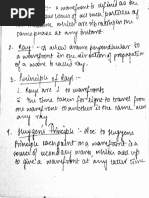 A wavefront is defined as the
continuous locus of all such particles of
the medium which are vibrating in the
same phase at any instant.
2. Ray:- A line drawn perpendicular to
a wavefront in the direction of propagation
of a wave is called ray.
3. Principle of Rays:-
1. Rays are ⊥ to wavefronts
ii the time taken for light to travel from
one wavefront to another is the same
along any ray.
4. Huygens Principle :- Acc to Huygens
Principle each point on a wavefront is a
source of secondary waves, which add up
to give a wavefront at any later time